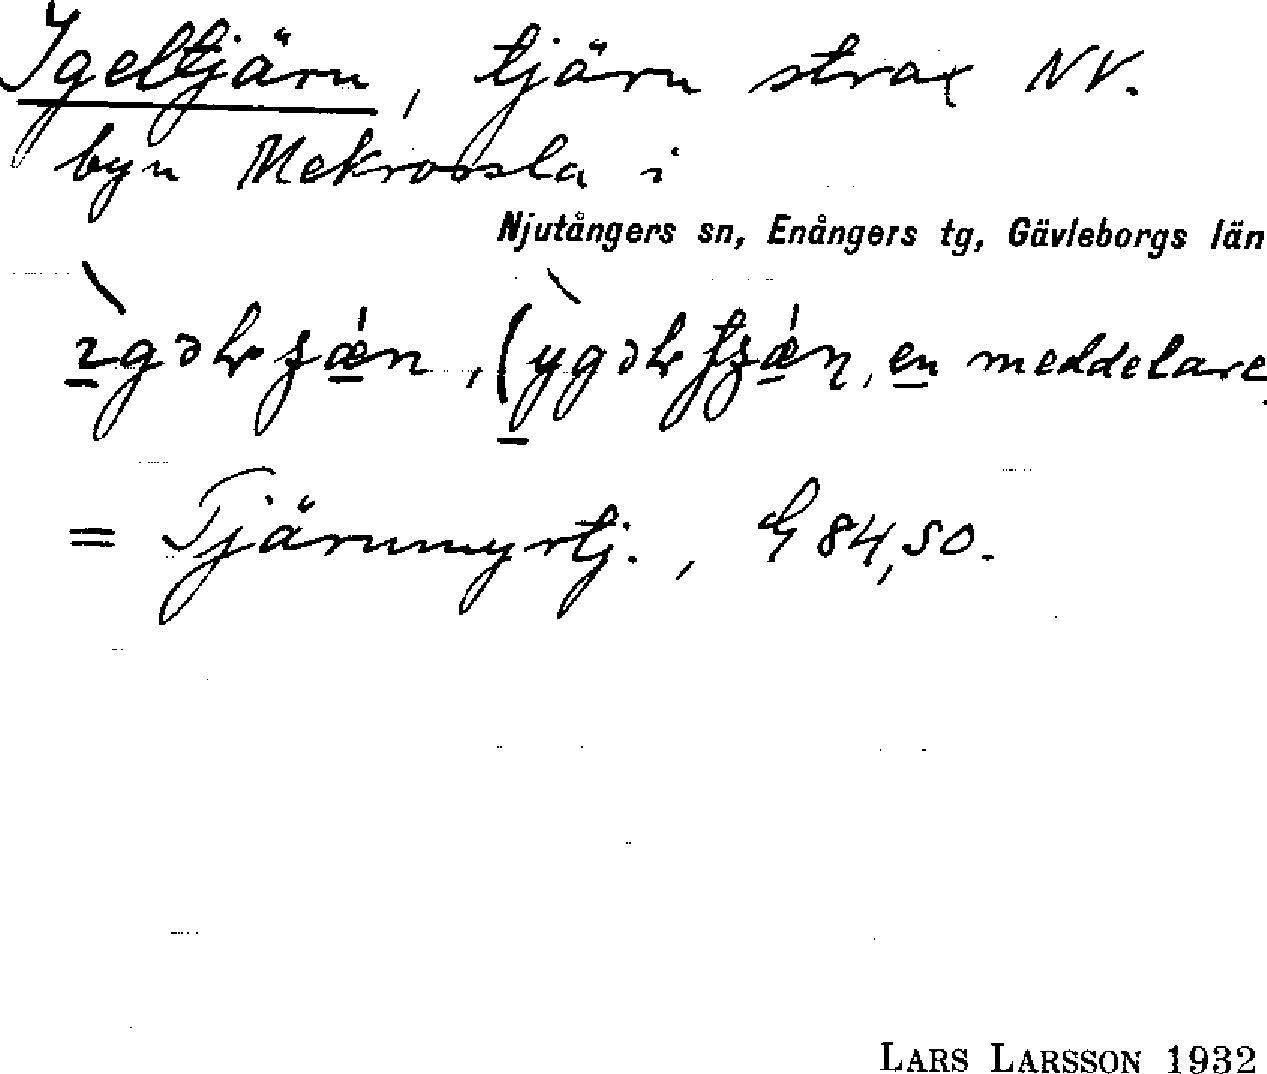 Igeltjärn, tjärn strax NV.
byn Mekrossla i
Njutångers sn, Enångers tg, Gävleborgs län
en meddelare
= Tjärnmyrtj., G 84,50.
LARS LARSSON 1932